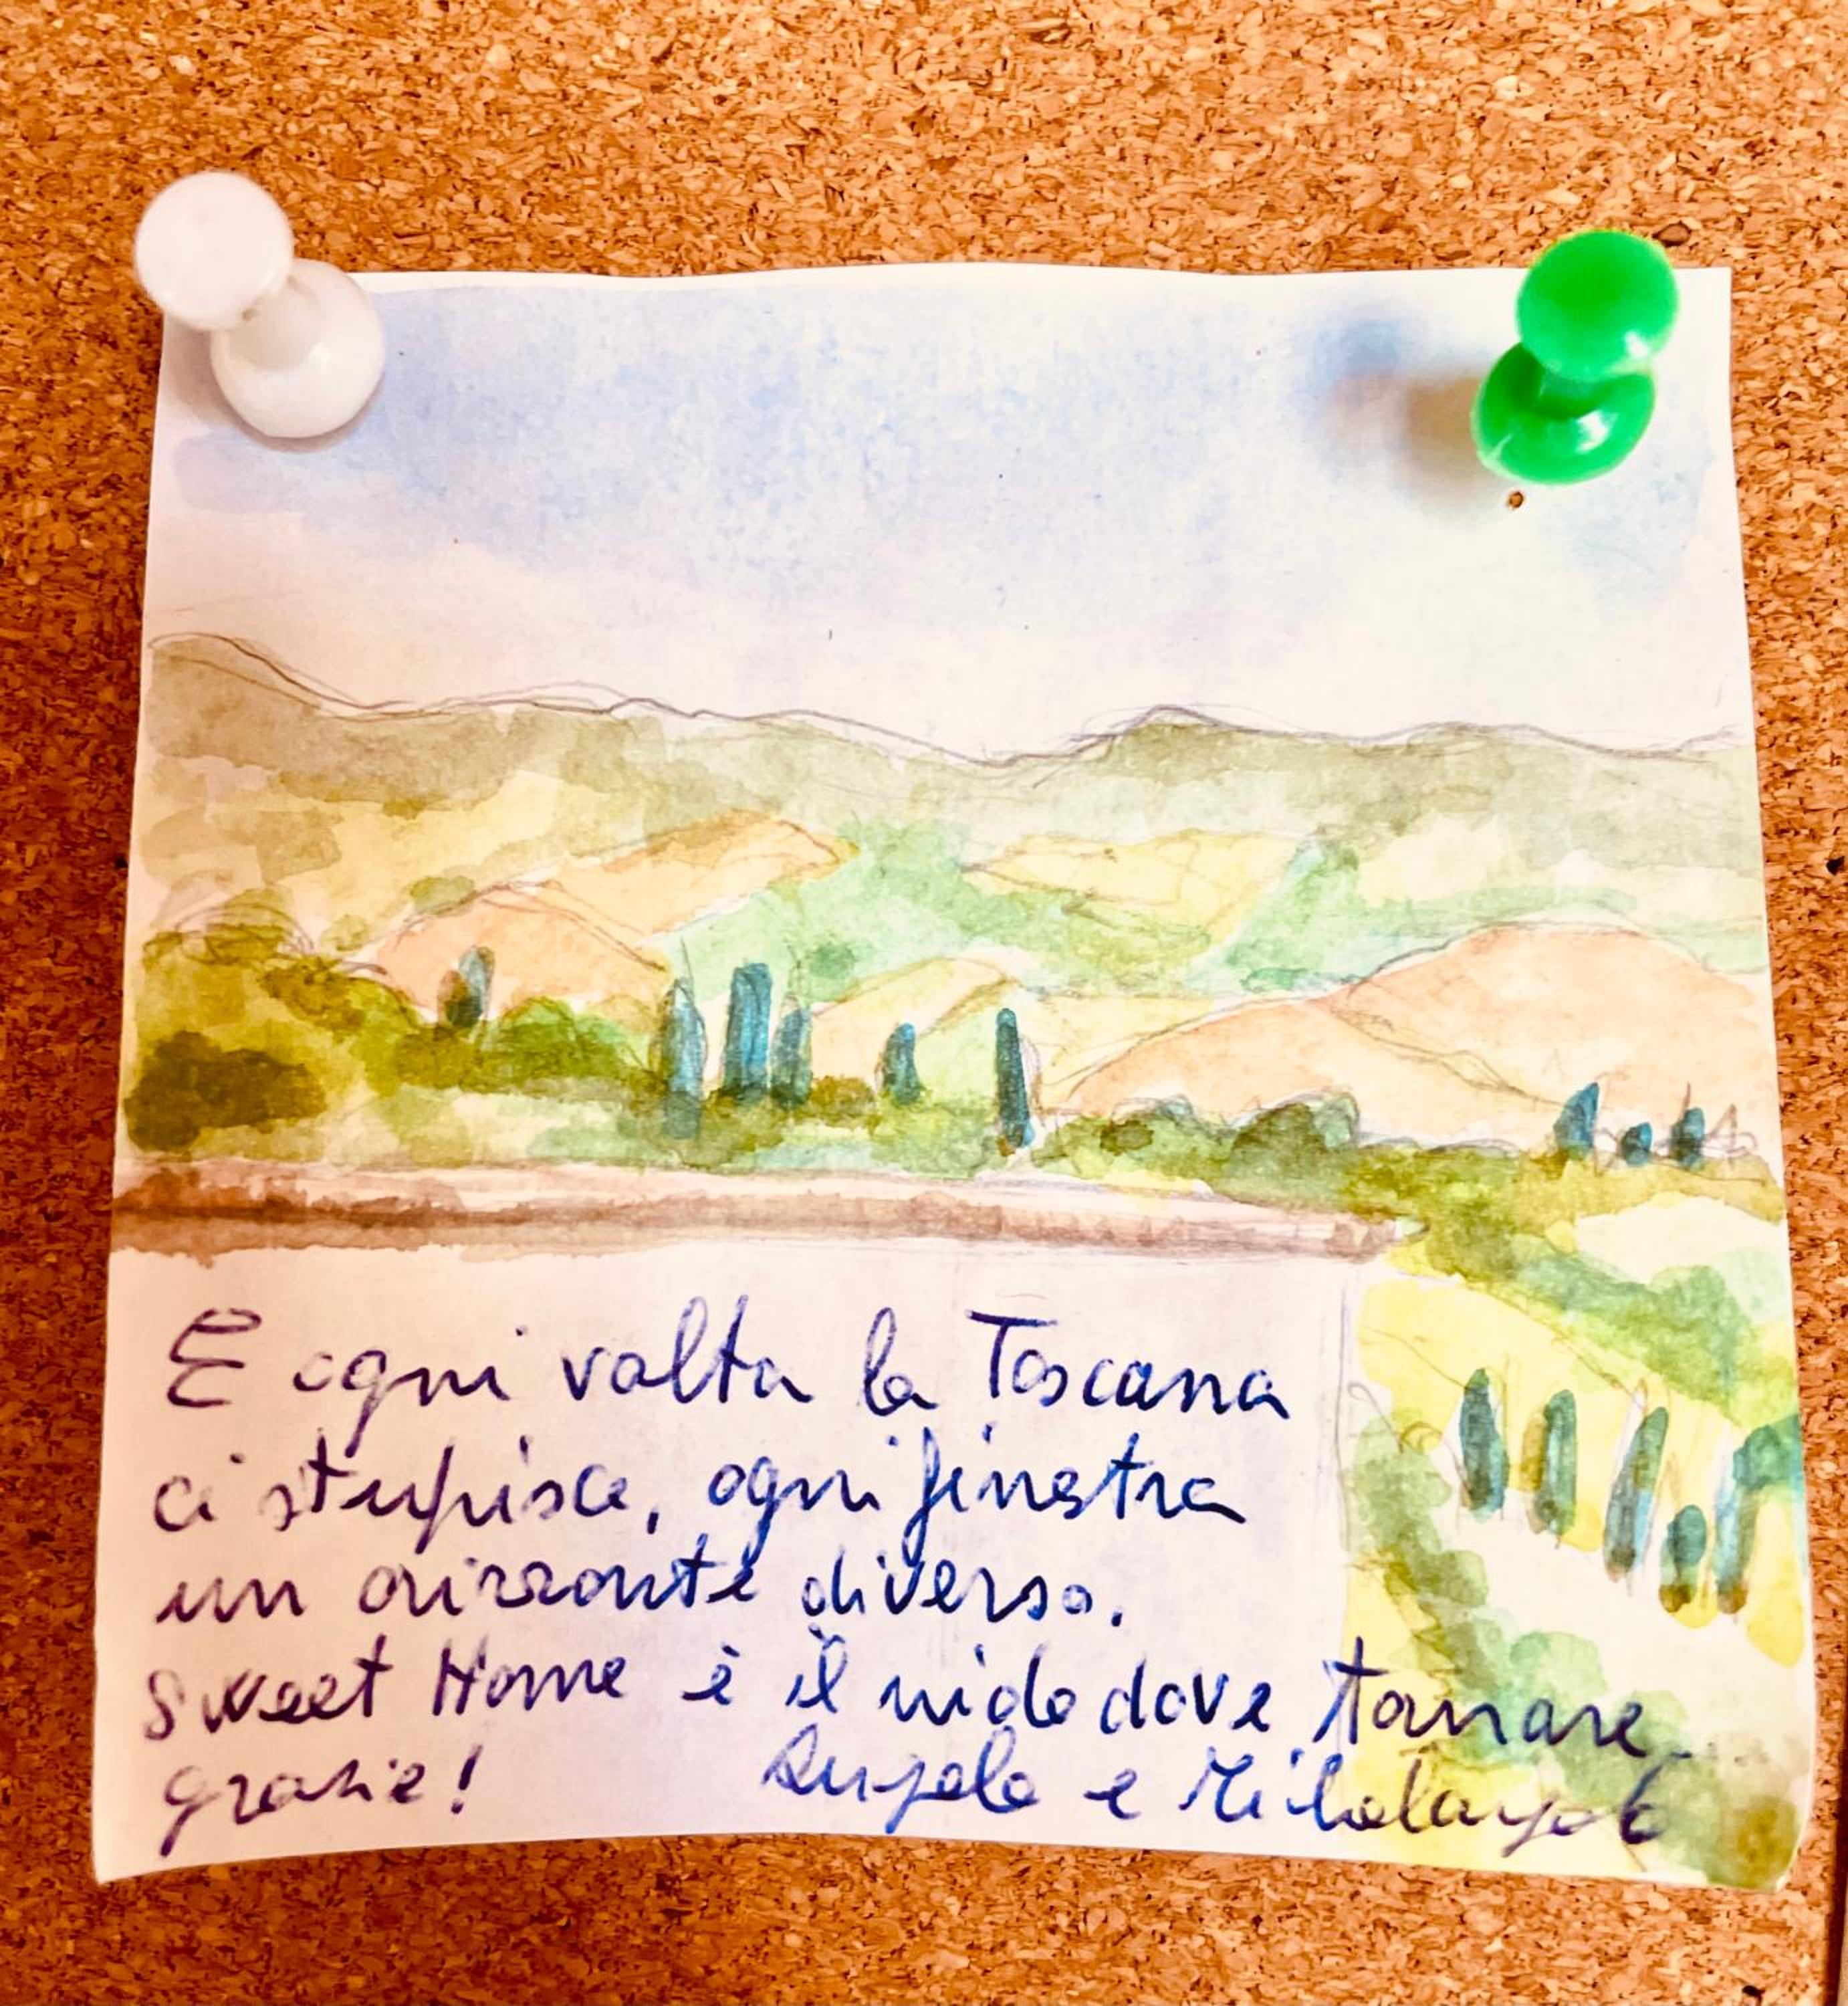 E ogni volta la Toscana
ci stupisce, ogni finestra
un orizzonte diverso.
Sweet Home è il nido dove tornare
grazie! Angelo e Michelangelo